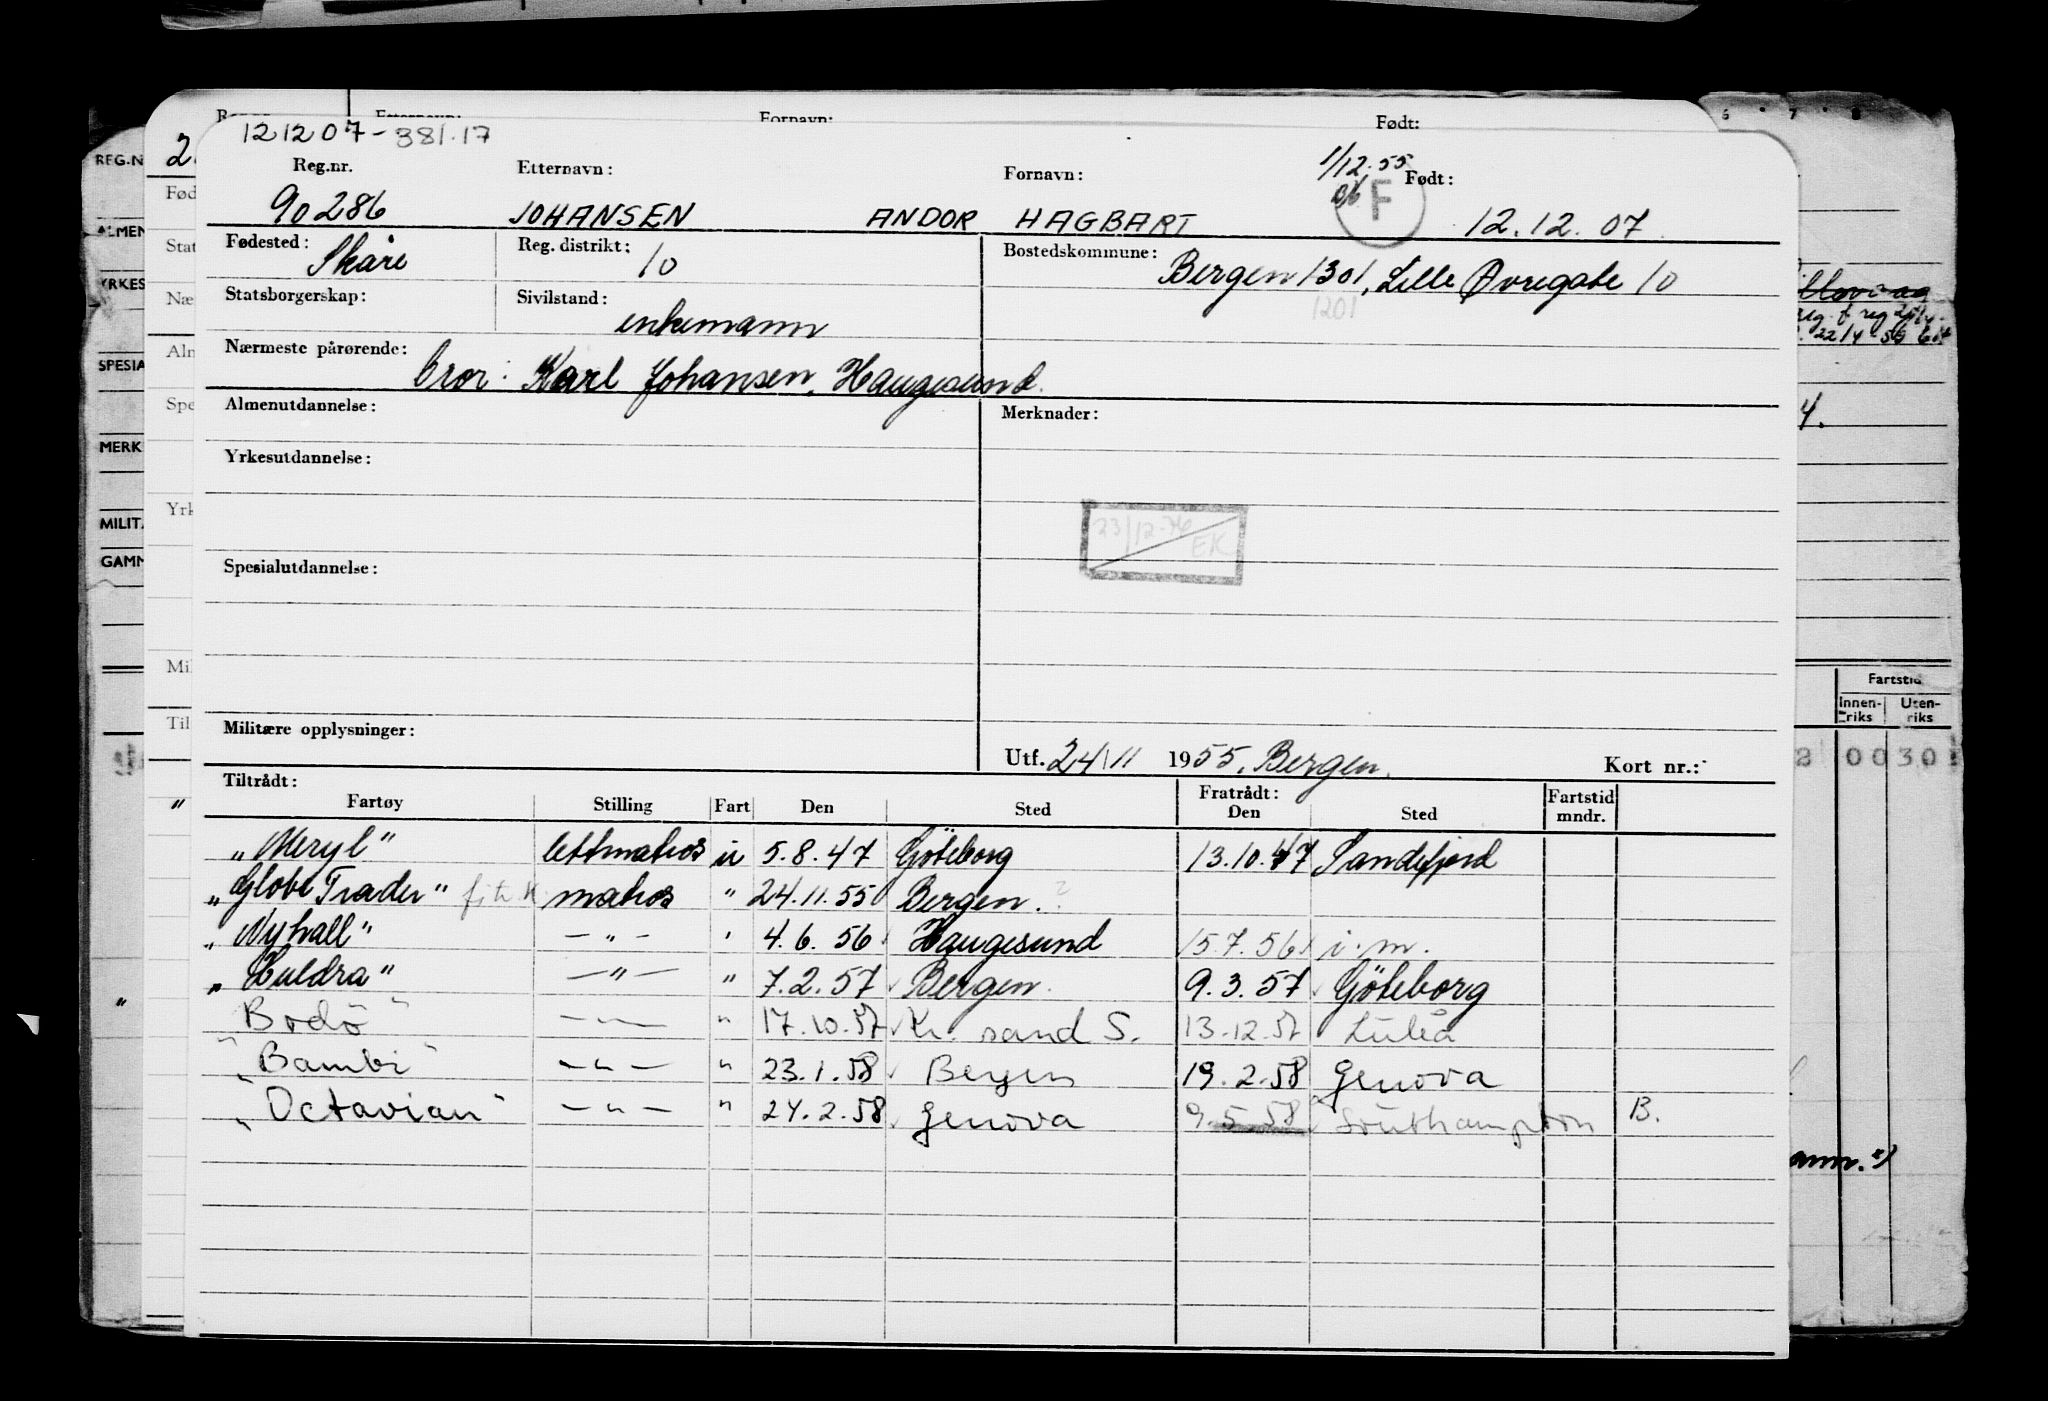 121207-381.17
Reg.nr. Etternavn: Fornavn: 1/12.55 Født:
90286 JOHANSEN ANDOR HAGBART F 12.12.07
Fødested: Skåre Reg. distrikt: 10 Bostedskommune: Bergen 1301, Lille Øvregate 10
1201
Statsborgerskap: Sivilstand: enkemann
Nærmeste pårørende: bror: Karl Johansen, Haugesund.
Almenutdannelse: Merknader:
Yrkesutdannelse:
23/12-76 EK
Spesialutdannelse:
Militære opplysninger:
Utf. 24/11 1955, Bergen. Kort nr.:
Tiltrådt: Fratrådt:
Fartøy Stilling Fart Den Sted Den Sted Fartstid mndr.
"Meryl" lettmatros u 5.8.47 Göteborg 13.10.47 Sandefjord
"Globe Trader" matros " 24.11.55 Bergen. ?
"Nyhall" —"— " 4.6.56 Haugesund 15.7.56 i.m.
"Huldra" —"— " 7.2.57 Bergen. 9.3.57 Göteborg
"Bodö" —"— " 17.10.57 Kr. sand S. 13.12.57 Luleå
"Bambi" —"— " 23.1.58 Bergen 19.2.58 Genova
"Octavian" —"— " 24.2.58 Genova 9.5.58 Southampton B.
REG.N
ALMEN
YRKES
SPESIA
MERK
MILIT.
GAMM
Fød
Stat
Næ
Alm
Spe
Yrk
Mil
Til
Fornavn: Født:
Fartstid
Innenriks Utenriks
2 00 30